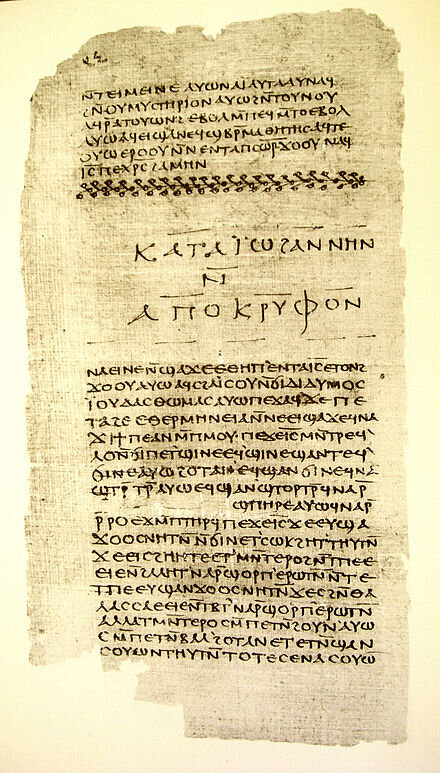 ⲛ̄ⲧⲉⲓⲙⲉⲓⲛⲉ ⲁⲩⲱ ⲛⲁⲓ̈ ⲁⲩⲧⲁⲁⲩ ⲛⲁϥ
ϩⲛ̄ⲛⲟⲩⲙⲩⲥⲧⲏⲣⲓⲟⲛ ⲁⲩⲱ ϩⲛ̄ⲧⲟⲩⲛⲟⲩ
ⲁϥⲣ̄ⲁⲧⲟⲩⲱⲛϩ ⲉⲃⲟⲗ ⲙ̄ⲡⲉϥⲙ̄ⲧⲟ ⲉⲃⲟⲗ
ⲁⲩⲱ ⲁϥⲉⲓ ϣⲁ ⲛⲉϥϣⲃⲣ̄ⲙⲁⲑⲏⲧⲏⲥ ⲁϥⲧⲉ
ⲟⲩⲱ ⲉⲣⲟⲟⲩ ⲛ̄ⲛⲉⲛⲧⲁⲡⲥⲱ̅ⲣ̅ ϫⲟⲟⲩ ⲛⲁϥ
ⲓ̅ⲥ̅ ⲡⲉⲭ̅ⲣ̅ⲥ̅ ϩⲁⲙⲏⲛ
ⲕⲁⲧⲁ ⲓ̈ⲱϩⲁⲛⲛⲏⲛ
ⲛ̄
ⲁⲡⲟⲕⲣⲩⲫⲟⲛ
ⲛⲁⲉⲓ ⲛⲉ ⲛ̄ϣⲁϫⲉ ⲉⲑⲏⲡ ⲉⲛⲧⲁⲓ̅ⲥ̅ ⲉⲧⲟⲛϩ
ϫⲟⲟⲩ ⲁⲩⲱ ⲁϥⲥϩⲁⲓ̈ⲥⲟⲩ ⲛ̄ϭⲓ ⲇⲓⲇⲩⲙⲟⲥ
ⲓ̈ⲟⲩⲇⲁⲥ ⲑⲱⲙⲁⲥ ⲁⲩⲱ ⲡⲉϫⲁϥ ϫⲉ ⲡⲉ
ⲧⲁϩⲉ ⲉⲑⲉⲣⲙⲏⲛⲉⲓⲁ ⲛ̄ⲛⲉⲉⲓϣⲁϫⲉ ϥⲛⲁ
ϫⲓ ϯⲡⲉ ⲁⲛ ⲙ̄ⲡⲙⲟⲩ ⲡⲉϫⲉ ⲓ̅ⲥ̅ ⲙⲛ̄ⲧⲣⲉϥ
ⲗⲟ ⲛ̄ϭⲓ ⲡⲉⲧϣⲓⲛⲉ ⲉϥϣⲓⲛⲉ ϣⲁⲛⲧⲉϥ
ϭⲓⲛⲉ ⲁⲩⲱ ϩⲟⲧⲁⲛ ⲉϥϣⲁⲛϭⲓⲛⲉ ϥⲛⲁ
ϣⲧⲣ̄ⲧⲣ̄ ⲁⲩⲱ ⲉϥϣⲁⲛϣⲧⲟⲣⲧⲣ̄ ϥⲛⲁⲣ̄
ϣⲡⲏⲣⲉ ⲁⲩⲱ ϥⲛⲁⲣ̄
ⲣ̄ⲣⲟ ⲉϫⲙ̄ ⲡⲧⲏⲣϥ ⲡⲉϫⲉ ⲓ̅ⲥ̅ ϫⲉ ⲉⲩϣⲁ
ϫⲟⲟⲥ ⲛⲏⲧⲛ̄ ⲛ̄ϭⲓ ⲛⲉⲧⲥⲱⲕ ϩⲏⲧ ⲧⲏⲩⲧⲛ̄
ϫⲉ ⲉⲓⲥϩⲏⲏⲧⲉ ⲉⲧⲙⲛ̄ⲧⲉⲣⲟ ϩⲛ̄ ⲧⲡⲉ ⲉ
ⲉⲓⲉ ⲛ̄ϩⲁⲗⲏⲧ ⲛⲁⲣ̄ϣⲟⲣⲡ ⲉⲣⲱⲧⲛ̄ ⲛ̄ⲧⲉ
ⲧⲡⲉ ⲉⲩϣⲁⲛϫⲟⲟⲥ ⲛⲏⲧⲛ̄ ϫⲉ ⲥϩⲛ̄ ⲑⲁ
ⲗⲁⲥⲥⲁ ⲉⲉⲓⲉ ⲛ̄ⲧⲃⲧ ⲛⲁⲣ̄ϣⲟⲣⲡ ⲉⲣⲱⲧⲛ̄
ⲁⲗⲗⲁ ⲧⲙⲛ̄ⲧⲉⲣⲟ ⲥⲙ̄ⲡⲉⲧⲛ̄ϩⲟⲩⲛ ⲁⲩⲱ
ⲥⲙ̄ⲡⲉⲧⲛ̄ⲃⲁⲗ ϩⲟⲧⲁⲛ ⲉⲧⲉⲧⲛ̄ϣⲁⲛ
ⲥⲟⲩⲱⲛ ⲧⲏⲩⲧⲛ̄ ⲧⲟⲧⲉ ⲥⲉⲛⲁⲥⲟⲩⲱ